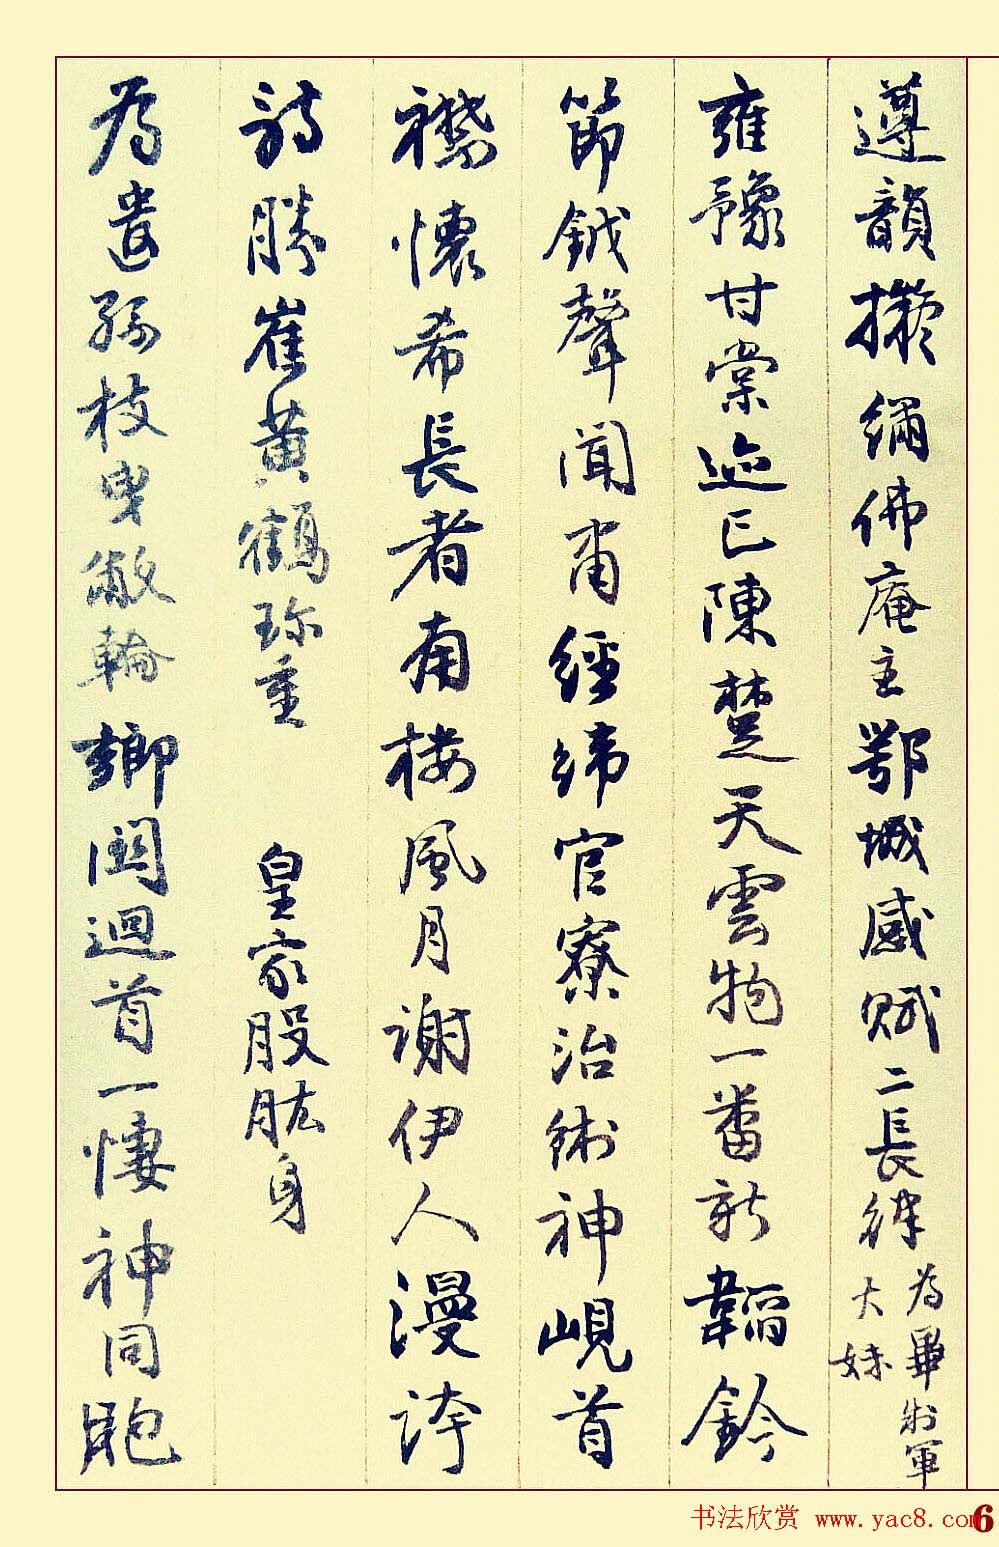 遵韻擬繡佛庵主鄂城感賦二長律
為畢制軍
大妹
雍豫甘棠迹已陳楚天雲物一番新韜鈐
節鉞聲聞甫經緯官寮治術神峴首
襟懷希長者南樓風月謝伊人漫誇
詩勝崔黃鶴珍重 皇家股肱身
為遣孫枝曳敝輪鄉閭迴首一悽神同胞
书法欣赏 www.yac8.com 6